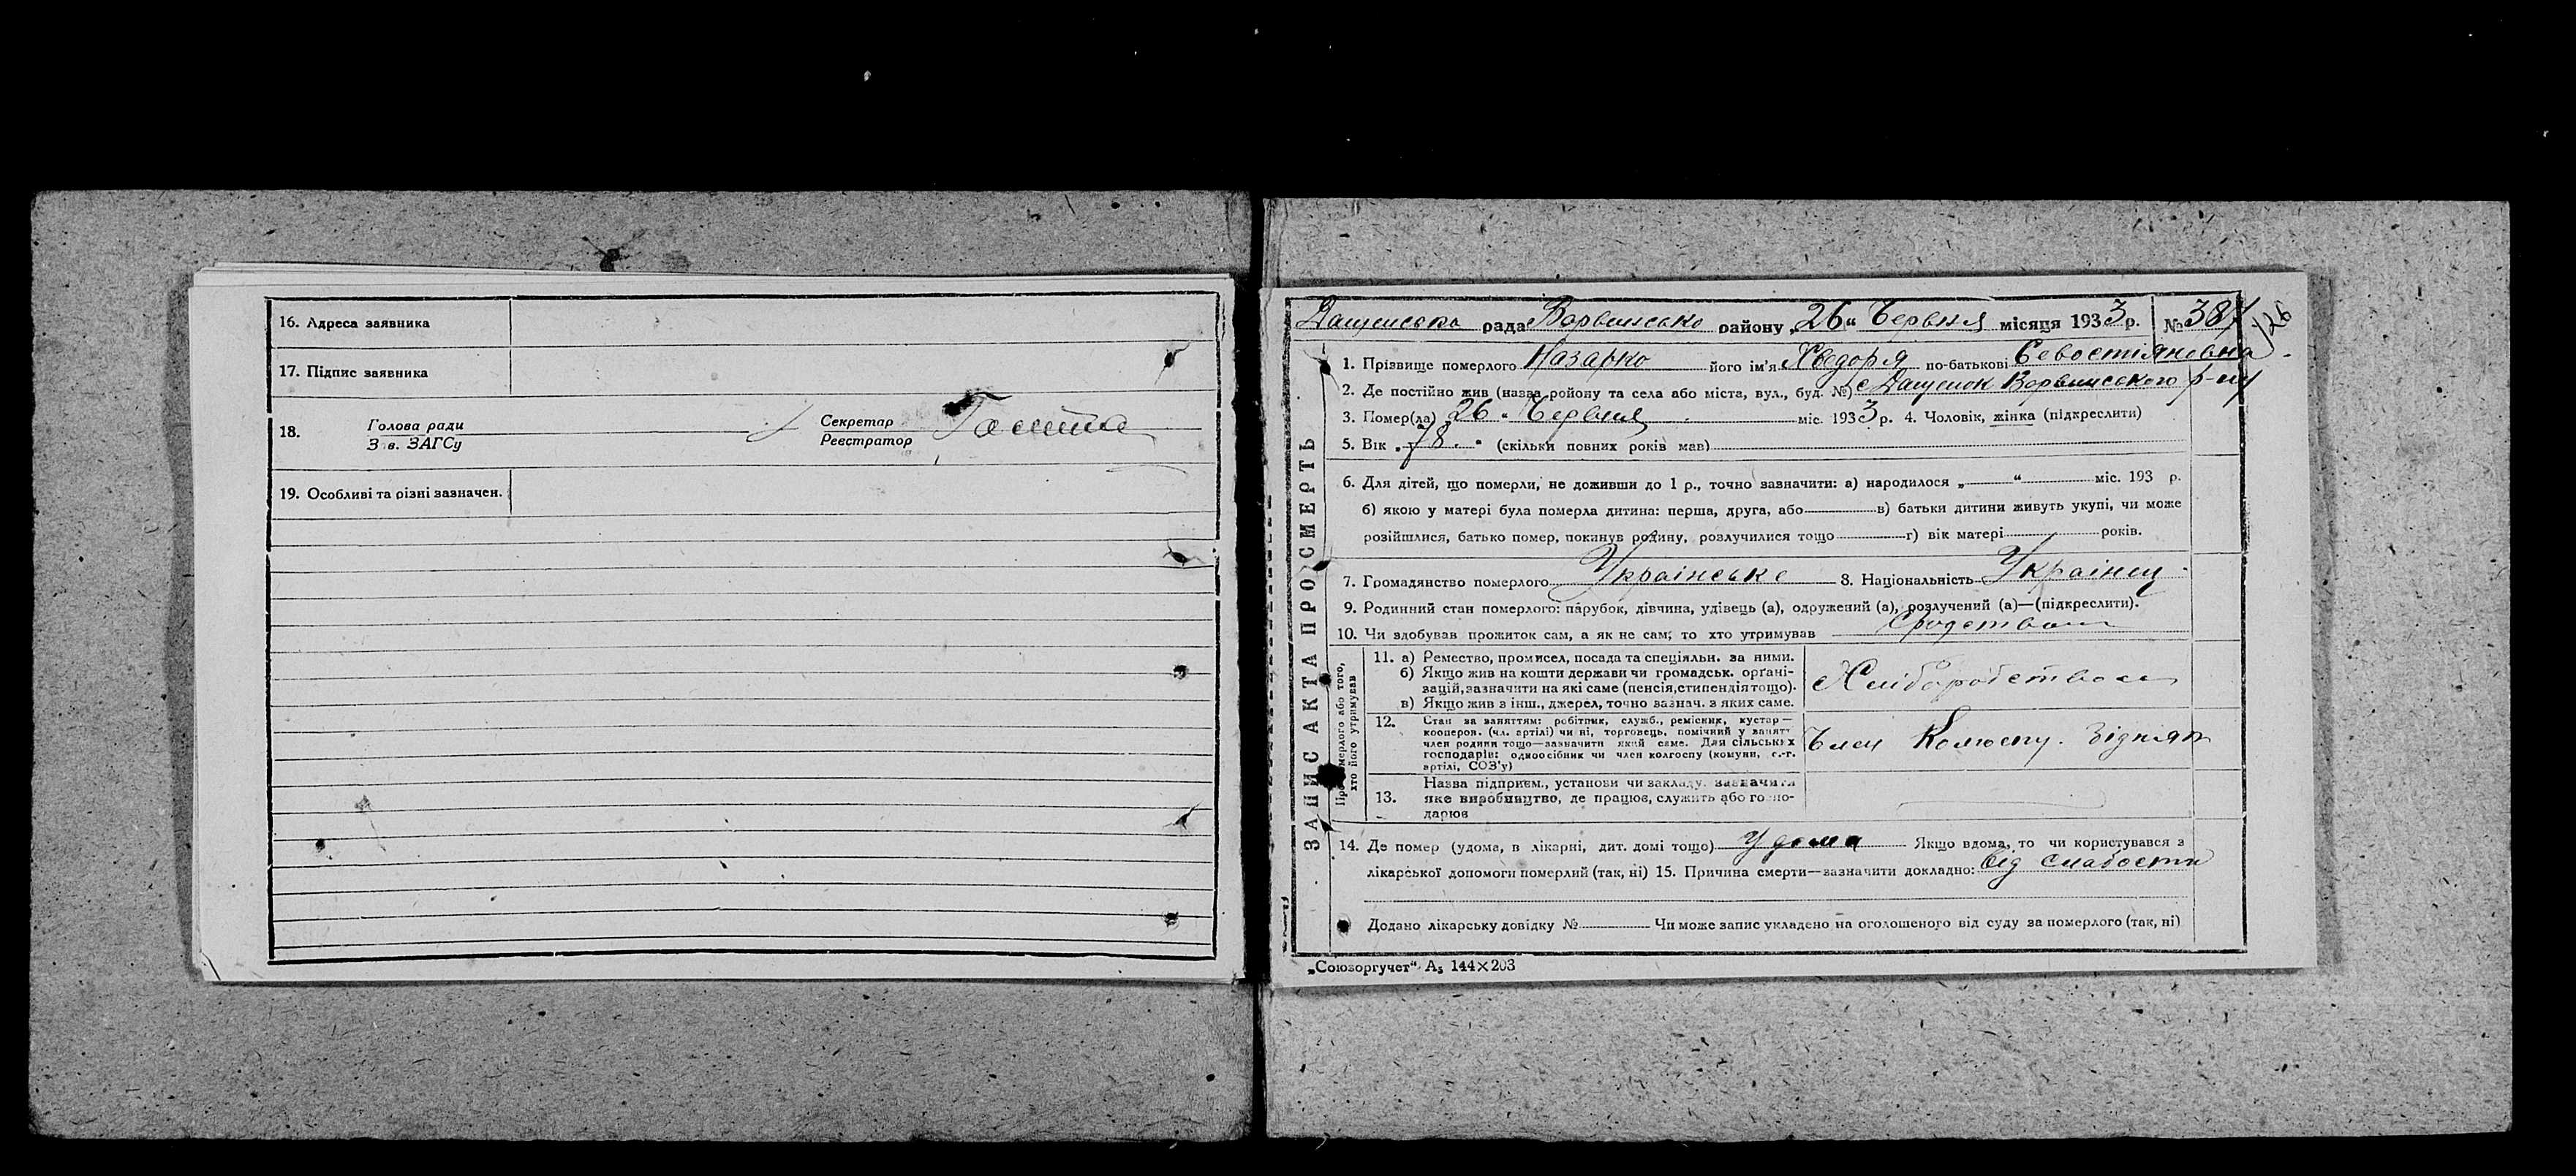 16. Адреса заявника
17. Підпис заявника
18. Голова ради
Зав. ЗАГСу
Секретар
Реєстратор
19. Особливі та різні зазначен.
ЗАПИС АКТА ПРО СМЕРТЬ
Дащенська рада Варвинсько району „26“ Червня місяця 1933 р. № 387
126
1. Прізвище померлого Назарко його ім'я Хведоря по-батькові Севостіяновна
2. Де постійно жив (назва ройону та села або міста, вул., буд. №) с Дащенок Варвинського р-ну
3. Помер(ла) „26“ Червня міс. 1933 р. 4. Чоловік, жінка (підкреслити)
5. Вік „78“ (скільки повних років мав)
6. Для дітей, що померли, не доживши до 1 р., точно зазначити: а) народилося „ “ міс. 193 р.
б) якою у матері була померла дитина: перша, друга, або в) батьки дитини живуть укупі, чи може
розійшлися, батько помер, покинув родину, розлучилися тощо г) вік матері років.
7. Громадянство померлого Українське 8. Національність Українец
9. Родинний стан померлого: парубок, дівчина, удівець (а), одружений (а), розлучений (а)—(підкреслити).
10. Чи здобував прожиток сам, а як не сам, то хто утримував Сродством
Про померлого або того,
хто його утримував
11. а) Ремество, промисел, посада та спеціяльн. за ними.
б) Якщо жив на кошти держави чи громадськ. орґані-
зацій, зазначити на які саме (пенсія, стипендія тощо).
в) Якщо жив з інш., джерел, точно зазнач. з яких саме.
Хліборобством
12. Стан за заняттям: робітник, служб., ремісник, кустар—
кооперов. (чл. артілі) чи ні, торговець, помічний у занятт
член родини тощо—зазначити який саме. Для сільських
господарів: одноосібник чи член колгоспу (комуни, с.-г.
артілі, СОЗ'у)
Член Колгоспу. Бідняк
13. Назва підприєм., установи чи закладу, зазначити
яке виробництво, де працює, служить або госпо-
дарює
14. Де помер (удома, в лікарні, дит. домі тощо) У дома Якщо вдома, то чи користувався з
лікарської допомоги померлий (так, ні) 15. Причина смерти—зазначити докладно: від слабости
Додано лікарську довідку № Чи може запис укладено на оголошеного від суду за померлого (так, ні)
„Союзоргучет“ А₅ 144×203